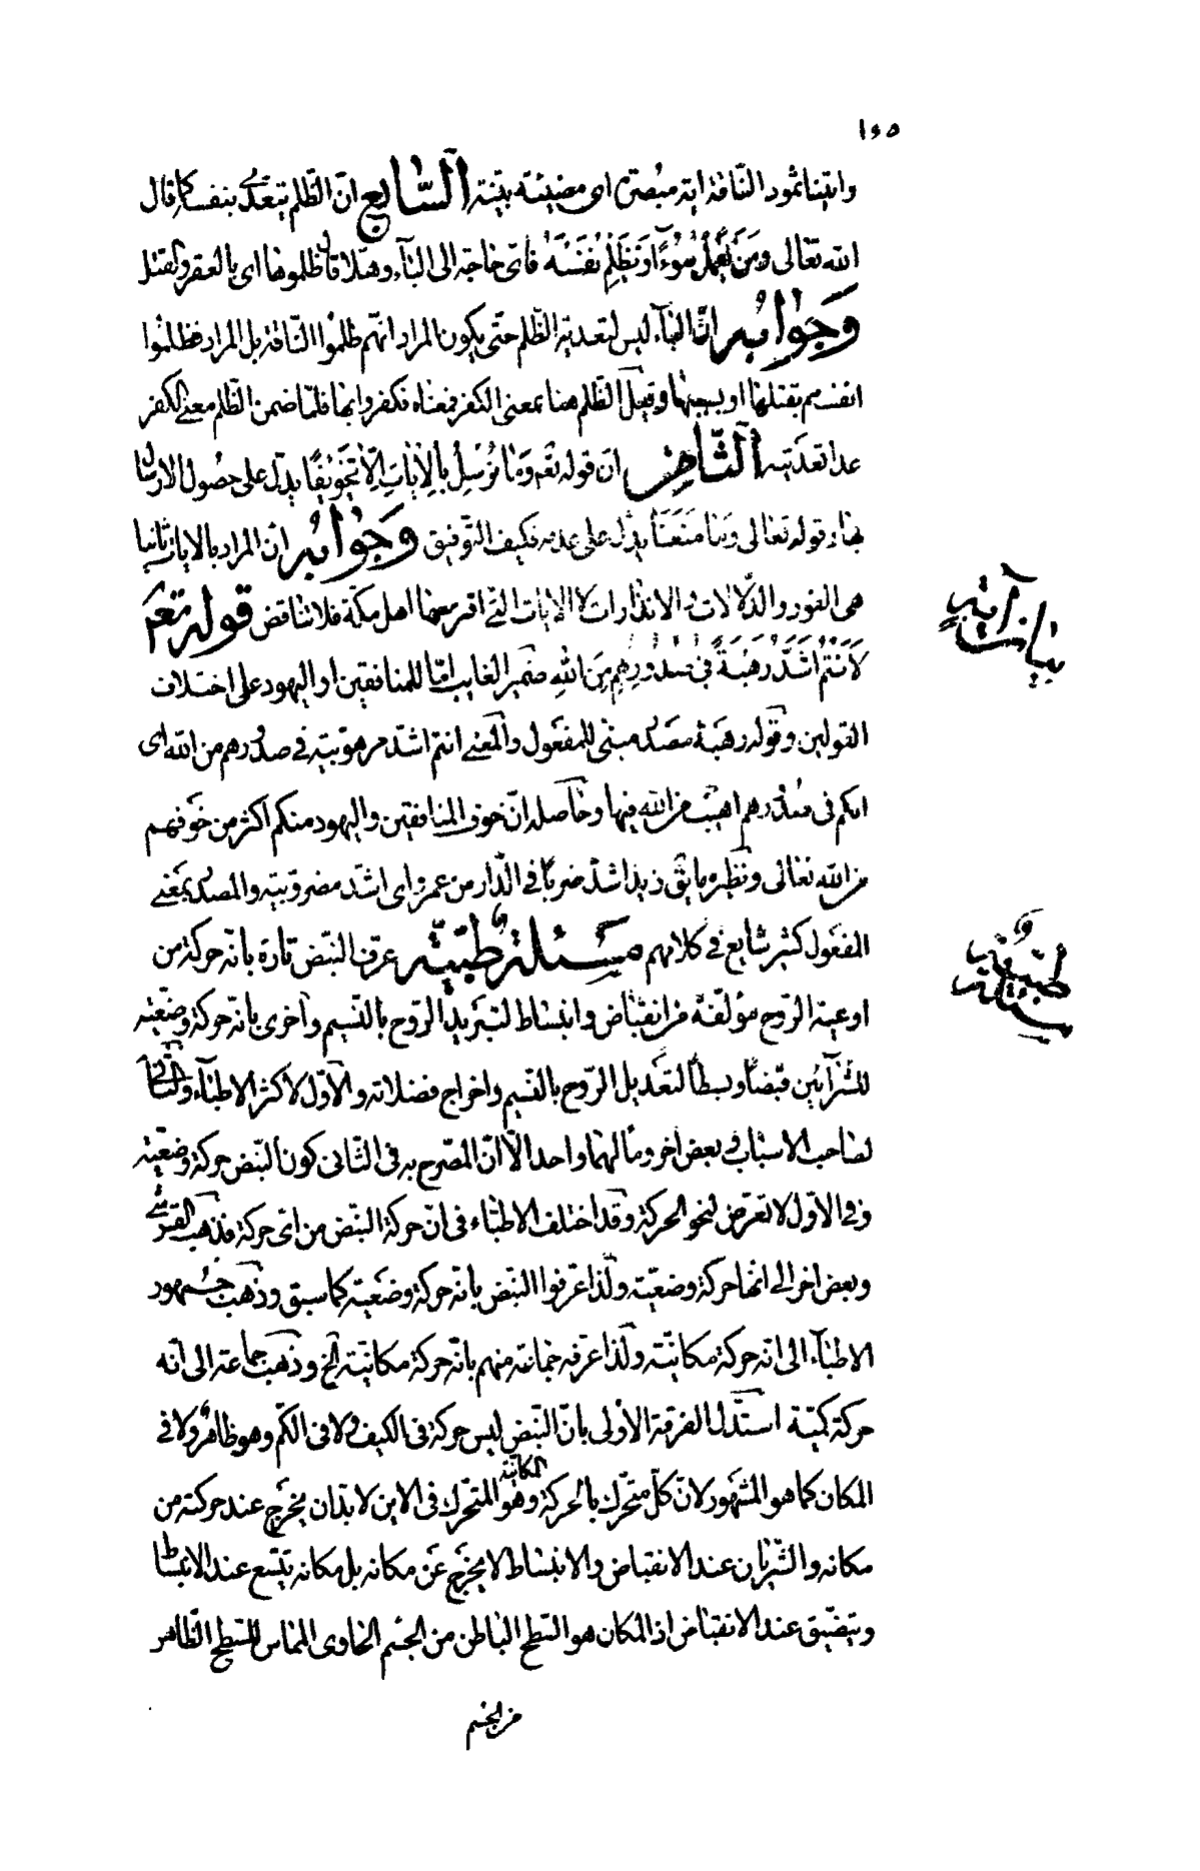 ١٥٥
واتينا ثمود الناقة اية مبصرة اى مضيئة بينة السّابع انّ الظّلم يتعدّى بنفسه كما قال
الله تعالى وَمَنْ يَعْمَلْ سُوْءًا اَوْ يَظْلِمْ نَفْسَهُ فاىّ حاجة الى البآء وهلّا قال ظلموها اى بالعقر والقتل
وَجَوابُه انّ البآء ليس لتعدية الظّلم حتّى يكون المراد انهم ظلموا النّاقة بل المراد فظلموا
انفسهم بقتلها او بسببها وقيل الظّلم هنا بمعنى الكفر فمعناه فكفروا بها فلمّا ضمن الظّلم معنى الكفر
عدا تعديته الثّامن ان قوله تعم وَما نُرْسِلُ بِالْاياتِ اِلّا تَخْوِيْفًا يدلّ على حصول الارسال
بها وقوله تعالى وَما مَنَعَنا يدلّ على عدمه فكيف التّوفيق وَجَوابُه انّ المراد بالايات ثانيا
هى العبور والدّلالات والانذارات لا الايات التى اقترحها اهل مكّة فلا تناقض قوله تعم
لَاَنْتُمْ اَشَدُّ رَهْبَةً فى صُدُورِهِمْ مِنَ اللهِ ضمير الغايب امّا للمنافقين او اليهود على اختلاف
القولين وقوله رهبة مصدر مبنى للمفعول والمعنى انتم اشد مرهوبية فى صدورهم من الله اى
انكم فى صدورهم اهيب من الله فيها وحاصله انّ خوف المنافقين واليهود منكم اكثر من خوفهم
من الله تعالى ونظيره ما يق زيد اشدّ ضربًا فى الدّار من عمرو اى اشد مضروبية والمصدر بمعنى
المفعول كثير شايع فى كلامهم مسئلة طبيّة عرف النّبض تارة بانّه حركة من
اوعية الرّوح مؤلّفة من انقباض وانبساط لتبريد الرّوح بالنّسيم واخرى بانّه حركة وضعيّة
للشّرآئين قبضًا وبسطًا لتعديل الرّوح بالنّسيم واخراج فضلاته والاوّل لاكثر الاطبّآء والثّانى
لصاحب الاسباب وبعض اخر ومآلهما واحد الّا انّ المصرّح به فى الثّانى كون النّبض حركة وضعيّة
وفى الاوّل لا تعرّض لنحو الحركة وقد اختلف الاطبّاء فى انّ حركة النّبض من اىّ حركة فذهب القرشى
وبعض اخر الى انّها حركة وضعيّة ولذا عرّفوا النّبض بانّه حركة وضعيّة كما سبق وذهب جمهور
الاطبّآء الى انّه حركة مكانيّة ولذا عرّفه جماعة منهم بانّه حركة مكانيّة الخ وذهب جماعة الى انّه
حركة كميّة استدلّ الفرقة الاولى بانّ النّبض ليس حركة فى الكيف ولا فى الكمّ وهو ظاهر ولا فى
المكان كما هو المشهور لانّ كلّ متحرّك بالحركة المكانيّة وهو المتحرّك فى الاين لا بدّ ان يخرج عند حركته من
مكانه والشّريان عند الانقباض والانبساط لا يخرج عن مكانه بل مكانه يتّسع عند الانبساط
ويتضيّق عند الانقباض اذ المكان هو السّطح الباطن من الجسم الحاوى المماس للسّطح الظّاهر
من الجسم
بيان آية
مسئلة طبيّة